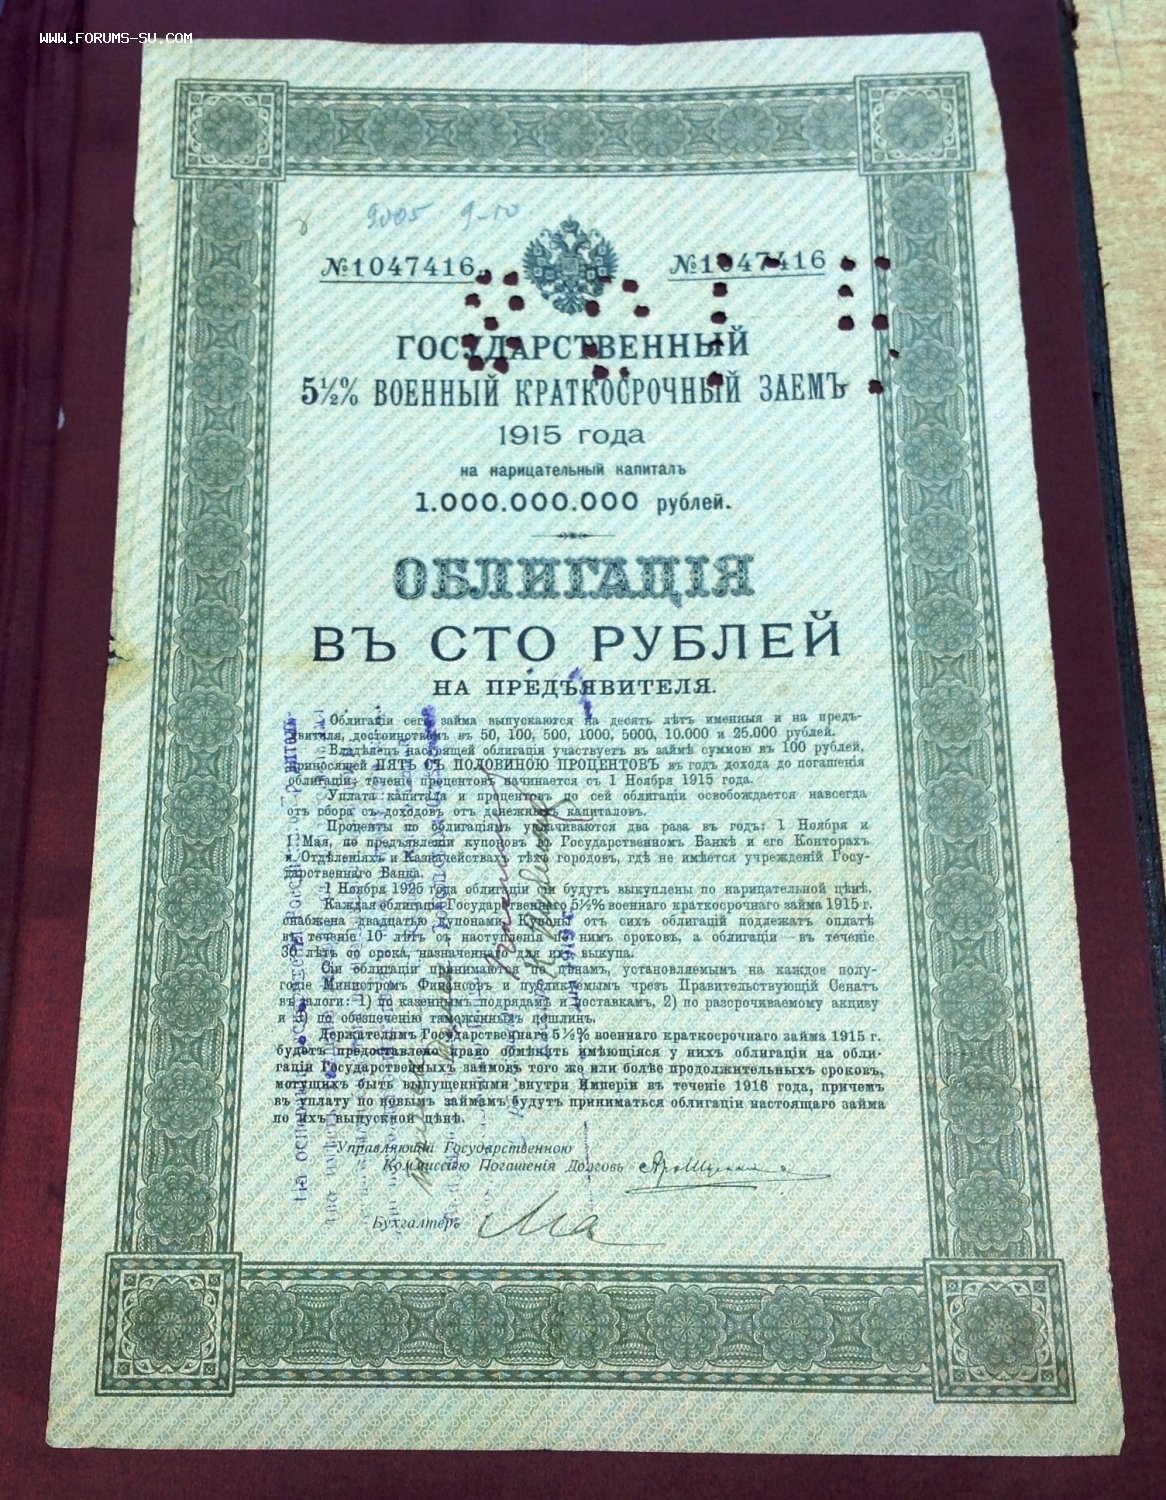 WWW.FORUMS-SU.COM
9005
№1047416
№1047416
ГОСУДАРСТВЕННЫЙ
5½% ВОЕННЫЙ КРАТКОСРОЧНЫЙ ЗАЕМЪ
1915 года
на нарицательный капиталъ
1.000.000.000 рублей.
ОБЛИГАЦІЯ
ВЪ СТО РУБЛЕЙ
НА ПРЕДЪЯВИТЕЛЯ.
Облигаціи сего займа выпускаются на десять лѣтъ именныя и на предъ-
явителя, достоинствомъ въ 50, 100, 500, 1000, 5000, 10.000 и 25.000 рублей.
Владѣлецъ настоящей облигаціи участвуетъ въ займѣ суммою въ 100 рублей,
приносящей ПЯТЬ СЪ ПОЛОВИНОЮ ПРОЦЕНТОВЪ въ годъ дохода до погашенія
облигаціи; теченіе процентовъ начинается съ 1 Ноября 1915 года.
Уплата капитала и процентовъ по сей облигаціи освобождается навсегда
отъ сбора съ доходовъ отъ денежныхъ капиталовъ.
Проценты по облигаціямъ уплачиваются два раза въ годъ: 1 Ноября и
1 Мая, по предъявленіи купоновъ въ Государственномъ Банкѣ и его Конторахъ
и Отдѣленіяхъ и Казначействахъ тѣхъ городовъ, гдѣ не имѣется учрежденій Госу-
дарственнаго Банка.
1 Ноября 1925 года облигаціи сіи будутъ выкуплены по нарицательной цѣнѣ.
Каждая облигація Государственнаго 5½% военнаго краткосрочнаго займа 1915 г.
снабжена двадцатью купонами. Купоны отъ сихъ облигацій подлежатъ оплатѣ
въ теченіе 10 лѣтъ съ наступленія по нимъ сроковъ, а облигаціи — въ теченіе
30 лѣтъ со срока, назначеннаго для ихъ выкупа.
Сіи облигаціи принимаются по цѣнамъ, установляемымъ на каждое полу-
годіе Министромъ Финансовъ и публикуемымъ чрезъ Правительствующій Сенатъ
въ залоги: 1) по казеннымъ подрядамъ и поставкамъ, 2) по разсрочиваемому акцизу
и 3) по обезпеченію таможенныхъ пошлинъ.
Держателямъ Государственнаго 5½% военнаго краткосрочнаго займа 1915 г.
будетъ предоставлено право обмѣнять имѣющіяся у нихъ облигаціи на обли-
гаціи Государственныхъ займовъ того же или болѣе продолжительныхъ сроковъ,
могущихъ быть выпущенными внутри Имперіи въ теченіе 1916 года, причемъ
въ уплату по новымъ займамъ будутъ приниматься облигаціи настоящаго займа
по ихъ выпускной цѣнѣ.
Управляющій Государственною
Комиссіею Погашенія Долговъ
Бухгалтеръ